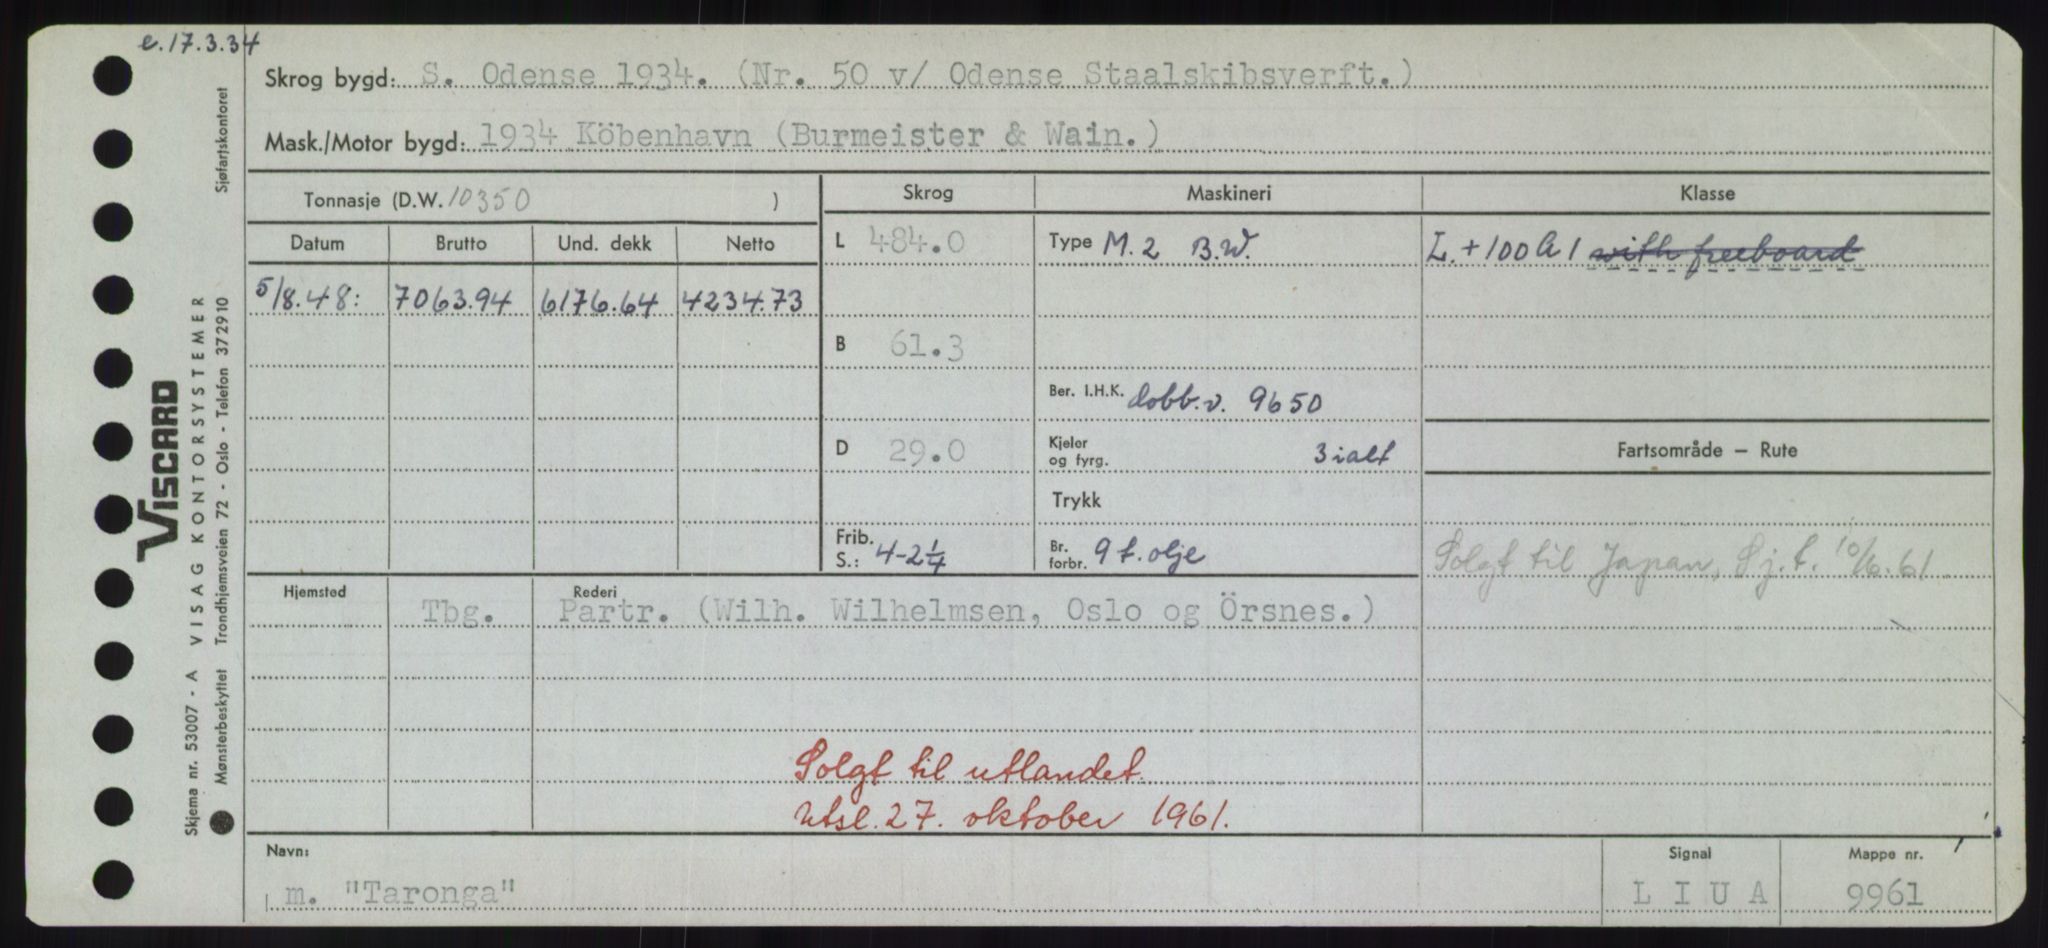 e.17.3.34
Skrog bygd: S. Odense 1934. (Nr. 50 v/ Odense Staalskibsverft.)
Mask./Motor bygd: 1934 Köbenhavn (Burmeister & Wain.)
Tonnasje (D.W. 10350 )
Skrog
Maskineri
Klasse
Datum Brutto Und. dekk Netto
5/8.48: 7063.94 6176.64 4234.73
L 484.0
B 61.3
D 29.0
Frib. S.: 4-2 1/4
Type M. 2 B.W.
Ber. I.H.K. dobb.v. 9650
Kjeler og fyrg. 3 ialt
Trykk
Br. forbr. 9 t. olje
L. + 100 A 1 with freeboard
Fartsområde – Rute
Solgt til Japan, Sj.t. 10/6.61
Hjemsted Rederi
Tbg. Partr. (Wilh. Wilhelmsen, Oslo og Örsnes.)
Solgt til utlandet.
Utsl. 27. oktober 1961.
Navn: m. "Taronga"
Signal LIUA
Mappe nr. 9961
VISCARD
Skjema nr. 53007 - A VISAG KONTORSYSTEMER
Mønsterbeskyttet Trondhjemsveien 72 - Oslo - Telefon 372910 Sjøfartskontoret